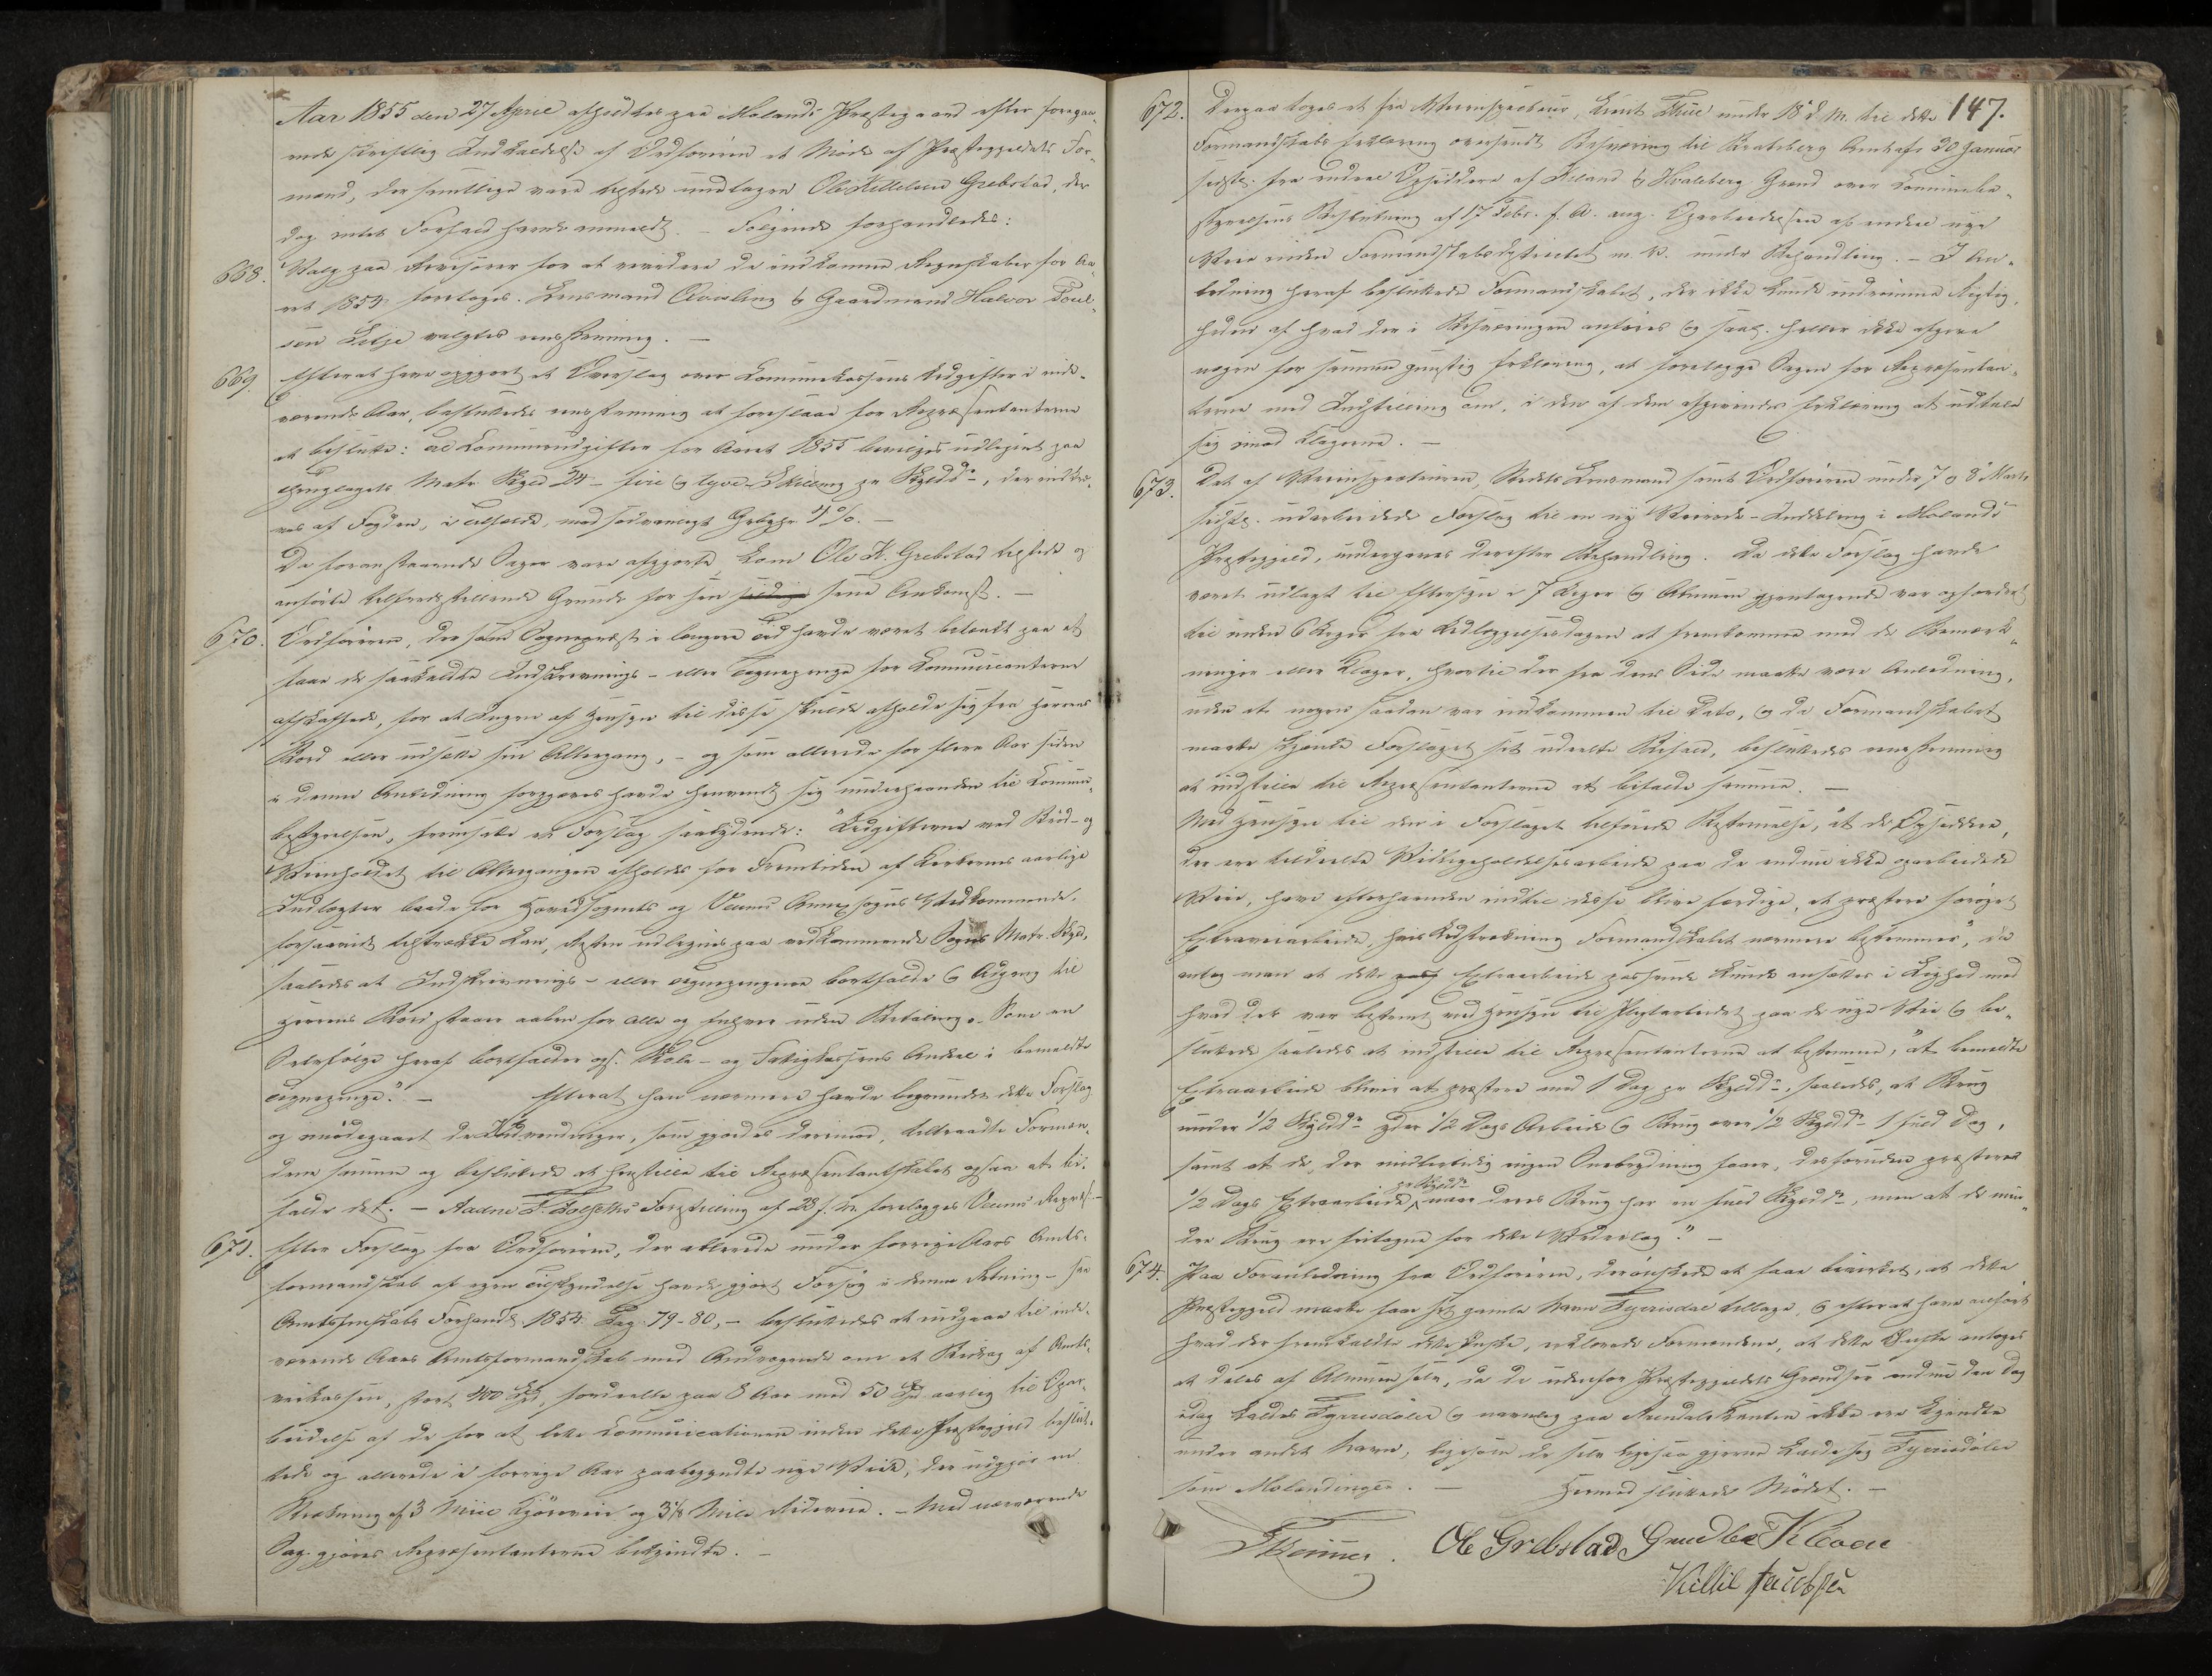 Aar 1855 den 27 April afholdtes paa Molands Præstegaard efter foregaa-
ende skriftlig Indkaldelse af Ordføreren et Møde af Præstegjeldets For-
mænd, der samtlige vare tilstede undtagen Ole Kittelsen Grebstad, der
dog intet Forfald havde anmeldt. - Følgende forhandledes:
668. Valg paa Revisorer for at revidere de indkomne Regnskaber for Aa-
ret 1854 foretoges. Lensmand Qvisling & Gaardmand Halvor Toul-
sen Litze valgtes eenstemmig. -
669. Efterat have opgjort et Overslag over Kommunekassens Udgifter i inde-
værende Aar, besluttedes eenstemmig at foreslaae for Repræsentanterne
at beslutte: At Kommuneudgifter for Aaret 1855 bevilges udlignet paa
Thinglagets Matr Skyld 24 - fire & tyve - Skilling pr Skyldd:, der inddri-
ves af Fogden, i Tilfælde, mod sædvanligt Gebyhr 4%. -
Da foranstaaende Sager vare afgjorte kom Ole K. Grebstad tilstede og
anførte tilfredsstillende Grunde for sin sildige sene Ankomst. -
670. Ordføreren, der som Sognepræst i længere Tid havde været betænkt paa at
faae de saakaldte Indskrivnings- eller Tegnepenge for Kommunicanterne
afskaffede, for at Ingen af Hensyn til disse skulde afholde sig fra Herrens
Bord eller udsætte sin Altergang, - og som allerede for flere Aar siden
i denne Anledning forgjæves havde henvendt sig underhaanden til Commu-
bestyrelsen, fremsatte et Forslag saalydende: "Udgifterne ved Brød- og
Viinholdet til Altergangen afholdes for Fremtiden af Kirkernes aarlige
Indtægter baade for Hovedsognets og Veums Annexsogns Vedkommende,
forsaavidt tilstrække kan, Resten udlignes paa vedkommende Sogns Matr. Skyld,
saaledes at Indskrivnings- eller Tegnepengene bortfalde & Adgang til
Herrens Bord staaer aaben for Alle og Enhver uden Betaling. Som en
Selvfølge heraf bortfalder ogs. Skole- og Fattigkassens Andeel i bemeldte
Tegnepenge." - Efterat han nærmere havde begrundet dette Forslag
og imødegaaet de Indvendinger, som gjordes derimod, tiltraadte Formæn-
dene samme og besluttede at henstille til Repræsentantskabet ogsaa at bi-
falde det. - Aadne T. Folseths Forestilling af 28 f. M. forelægges Veums Repræs.-
671. Efter Forslag fra Ordføreren, der allerede under forrige Aars Amts-
formandskab af egen Tilskyndelse havde gjort Forsøg i denne Retning - see
Amtsformskabs Forhandl 1854 Pag 79-80, - besluttedes at indgaae til inde-
værende Aars Amtsformandskab med Andragende om et Bidrag af Amts-
veikassen, stort 400 Spd, fordeelte paa 8 Aar med 50 Spd aarlig til Opar-
beidelse af de for at lette Communicationen inden dette Præstegjeld beslut-
tede og allerede i forrige Aar paabegyndte nye Veie, der udgjør en
Strækning af 3 Miil Kjørevei og 3 1/8 Mile Rideveie. - Med nærværende
Sag gjøres Repræsentanterne bekjendte. -
147.
672. Derpaa toges et fra Veiinspecteur, Lieut. Thue under 18 d. M. til dette
Formandskabs Erklæring oversendt Besværing til Bratsberg Amt af 30 Januar
sidstl. fra endeel Opsiddere af Kleland & Hvaleberg Grænd over Kommunebe-
styrelsens Beslutning af 17 Febr. f. A. ang. Oparbeidelsen af endeel nye
Veie inden Formandskabsdistrictet m. V. under Behandling. - I An-
ledning heraf besluttede Formandskabet, der ikke kunde indrømme Rigtig-
heden af hvad der i Besværingen anføres og saal. heller ikke afgive
nogen for samme gunstig Erklæring, at forelægge Sagen for Repræsentan-
terne med Indstilling om, i den af dem afgivende Erklæring at udtale
sig imod Klagerne. -
673. Det af Veiinspecteuren, Stedets Lensmand samt Ordføreren under 7 & 8 Marts
sidstl. udarbeidede Forslag til en ny Veirode-Inddeling i Molands
Præstegjeld, undergaves derefter Behandling. Da dette Forslag havde
været udlagt til Eftersyn i 7 Uger & Almuen gjentagende var opfordret
til inden 6 Uger fra Udlæggelsesdagen at fremkomme med de Bemærk-
ninger eller Klager, hvortil der fra dens Side maatte være Anledning,
uden at nogen saadan var indkommen til Dato, & da Formandskabet
maatte skjænke Forslaget sit udeelte Bifald, besluttedes eenstemmig
at indstille til Repræsentanterne at bifalde samme. -
Med Hensyn til den i Forslaget tilføiede Bestemmelse, "at de Opsiddere,
der ere tildeelte Vedligeholdelsesarbeide paa de endnu ikke oparbeidede
Veie, have efterhaanden indtil disse blive færdige, at præstere forøget
Extraveiarbeide, hvis Udstrækning Formandskabet nærmere bestemmer", da
antog man at dette pass Extraarbeide passende kunde ansættes i Lighed med
hvad der var bestemt med Hensyn til Pligtarbeidet paa de nye Veie & be-
sluttede saaledes at indstille til Repræsentanterne at bestemme, "at bemeldte
Extraarbeide bliver at præstere med 1 Dag pr Skyldd:, saaledes, at Brug
under 1/2 Skyldd: yder 1/2 Dags Arbeide & Brug over 1/2 Skyldd: 1 fuld Dag,
samt at de, der midlertidig ingen Omlægning faaer, desforuden præsterer
1/2 Dags Extraarbeide pr Skyldd: naar deres Brug har en fuld Skyldd:, men at de min-
dre Brug ere fritagne for dette Vederlag." -
674. Paa Foranledning fra Ordføreren, der ønskede at faae bevirket, at dette
Præstegjeld maatte faae sit gamle Navn Fyrrisdal tillage, & efterat have anført
hvad der fremkaldte dette Ønske, erklærede Formændene, at dette Ønske antages
at deles af Almuen selv, da de udenfor Præstegjeldets Grændser endnu den Dag
idag kaldes Fyrrisdøler & navnlig paa Arendalskanten ikke ere kjendte
under andet Navn, ligesom de selv ligesaa gjerne kalde sig Fyrrisdøler
som Molandinger. - Hermed sluttede Mødet. -
Ole Grebstad Gundber Kleven
Kittil Jacobsen